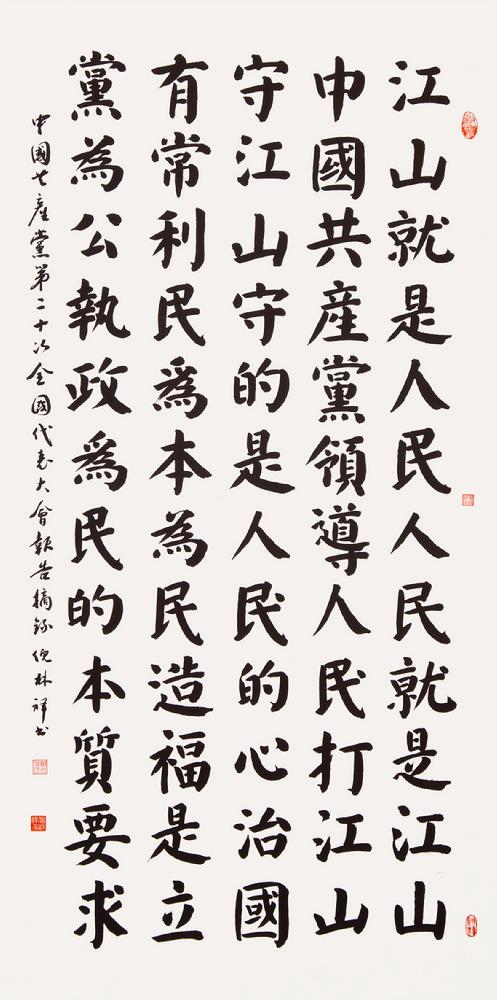 江山就是人民人民就是江山
中國共産黨領導人民打江山
守江山守的是人民的心治國
有常利民爲本為民造福是立
黨為公執政爲民的本質要求
中國共産黨第二十次全國代表大會報告摘錄 倪林祥書